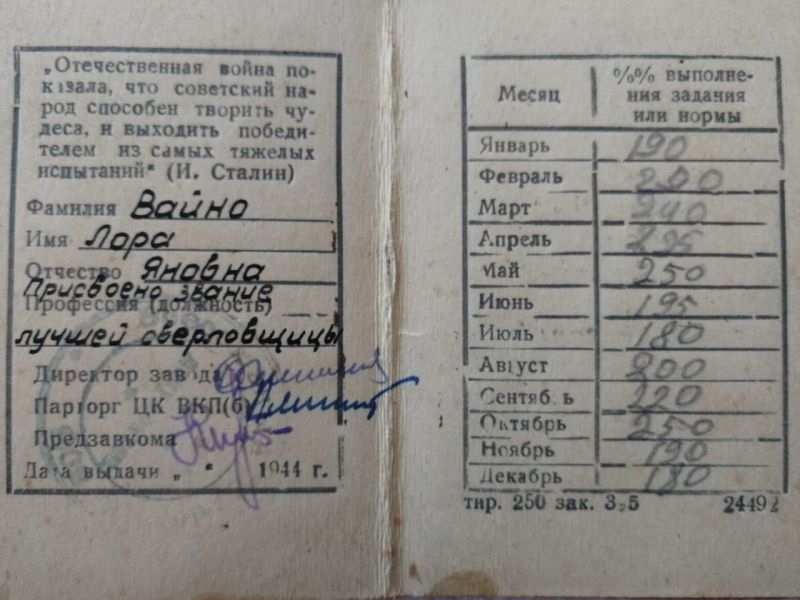 „Отечественная война по-
казала, что советский на-
род способен творить чу-
деса, и выходить победи-
телем из самых тяжелых
испытаний" (И. Сталин)
Фамилия Вайно
Имя Лора
Отчество Яновна
Присвоено звание
Профессия (должность)
лучшей сверловщицы
Директор завода
Парторг ЦК ВКП(б)
Предзавкома
Дата выдачи „ " 1944 г.
Месяц %% выполне-
ния задания
или нормы
Январь 190
Февраль 200
Март 240
Апрель 235
Май 250
Июнь 195
Июль 180
Август 200
Сентябрь 220
Октябрь 250
Ноябрь 190
Декабрь 180
тир. 250 зак. 24492